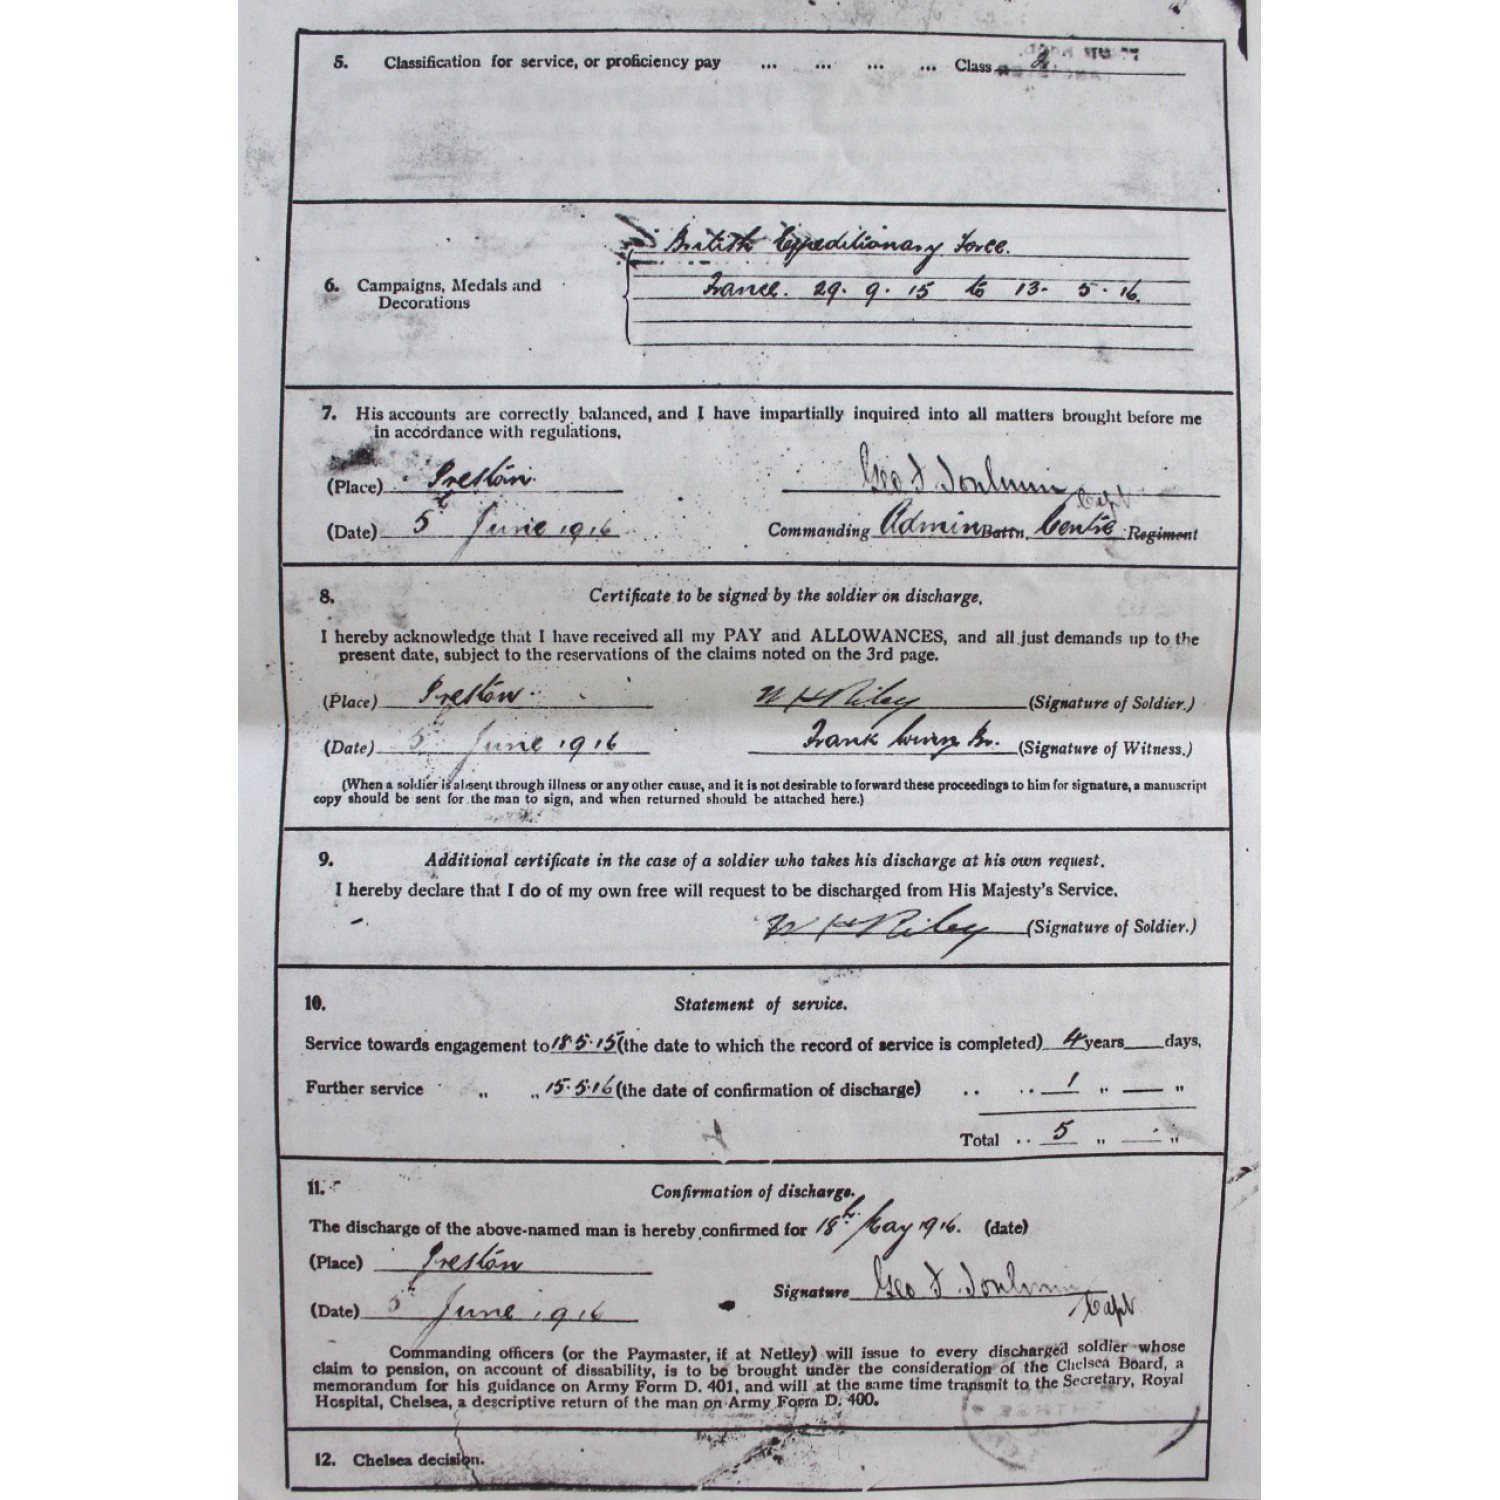 5. Classification for service, or proficiency pay ... ... ... ... Class 2.
British Expeditionary Force.
6. Campaigns, Medals and
Decorations
France. 29. 9. 15 to 13. 5. 16.
7. His accounts are correctly balanced, and I have impartially inquired into all matters brought before me
in accordance with regulations.
(Place) Preston. Geo F Toulmin Capt
(Date) 5th June 1916 Commanding Admin Battn. Centre Regiment
8. Certificate to be signed by the soldier on discharge.
I hereby acknowledge that I have received all my PAY and ALLOWANCES, and all just demands up to the
present date, subject to the reservations of the claims noted on the 3rd page.
(Place) Preston. W H Riley (Signature of Soldier.)
(Date) 5 June 1916 Frank Br. (Signature of Witness.)
(When a soldier is absent through illness or any other cause, and it is not desirable to forward these proceedings to him for signature, a manuscript
copy should be sent for the man to sign, and when returned should be attached here.)
9. Additional certificate in the case of a soldier who takes his discharge at his own request.
I hereby declare that I do of my own free will request to be discharged from His Majesty's Service.
W H Riley (Signature of Soldier.)
10. Statement of service.
Service towards engagement to 18.5.15 (the date to which the record of service is completed) 4 years — days.
Further service „ „ 15.5.16 (the date of confirmation of discharge) .. .. 1 „ — „
Total .. 5 „ — „
11. Confirmation of discharge.
The discharge of the above-named man is hereby confirmed for 18th May 1916. (date)
(Place) Preston
Signature Geo F. Toulmin
(Date) 5th June 1916 Capt
Commanding officers (or the Paymaster, if at Netley) will issue to every discharged soldier whose
claim to pension, on account of dissability, is to be brought under the consideration of the Chelsea Board, a
memorandum for his guidance on Army Form D. 401, and will at the same time transmit to the Secretary, Royal
Hospital, Chelsea, a descriptive return of the man on Army Form D. 400.
12. Chelsea decision.